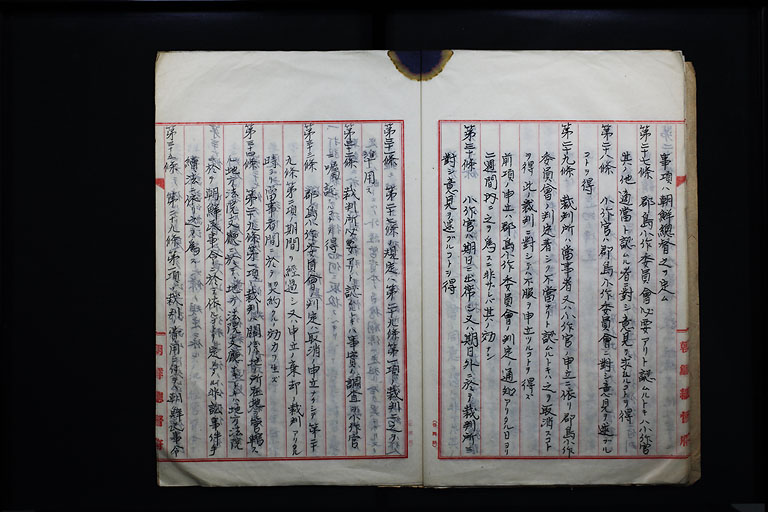 事項ハ朝鮮總督之ヲ定ム
第二十七條 郡島小作委員會必要アリト認ムルトキハ小作官
其ノ他適當ト認ムル者ニ對シ意見ヲ求ムルコトヲ得
第二十八條 小作官ハ郡島小作委員會ニ對シ意見ヲ述ブル
コトヲ得
第二十九條 裁判所ハ當事者又ハ小作官ノ申立ニ依リ郡島小作
委員會ノ判定著シク不當ナリト認ムルトキハ之ヲ取消スコト
ヲ得此ノ裁判ニ對シテハ不服ヲ申立ツルコトヲ得ズ
前項ノ申立ハ郡島小作委員會ノ判定ノ通知アリタル日ヨリ
二週間内ニ之ヲ爲スニ非ザレバ其ノ効ナシ
第三十條 小作官ハ期日ニ出席シ又ハ期日外ニ於テ裁判所ニ
對シ意見ヲ述ブルコトヲ得
朝鮮總督府
第三十一條 第二十七條ノ規定ハ第二十九條第一項ノ裁判ニ之ヲ
準用ス
第三十二條 裁判所必要アリト認ムルトキハ事實ノ調査ヲ小作官
ニ囑託スルコトヲ得
第三十三條 郡島小作委員會ノ判定ハ取消ノ申立ナクシテ第二十
九條第二項ノ期間ヲ經過シ又ハ申立ノ棄却ノ裁判アリタル
時ハ當事者間ニ於テ契約ノ効力ヲ生ズ
第三十四條 第二十九條第一項ノ裁判ハ關係土地ノ所在地ヲ管轄ス
ル地方法院
ノ地方法院
於テ朝鮮民事令ニ於テ依ルコトヲ定メタル非訟事件手
續法ニ依リ之ヲ爲ス
第三十五條 第二十九條第一項ノ裁判ノ費用ニ付テハ朝鮮民事令
朝鮮總督府